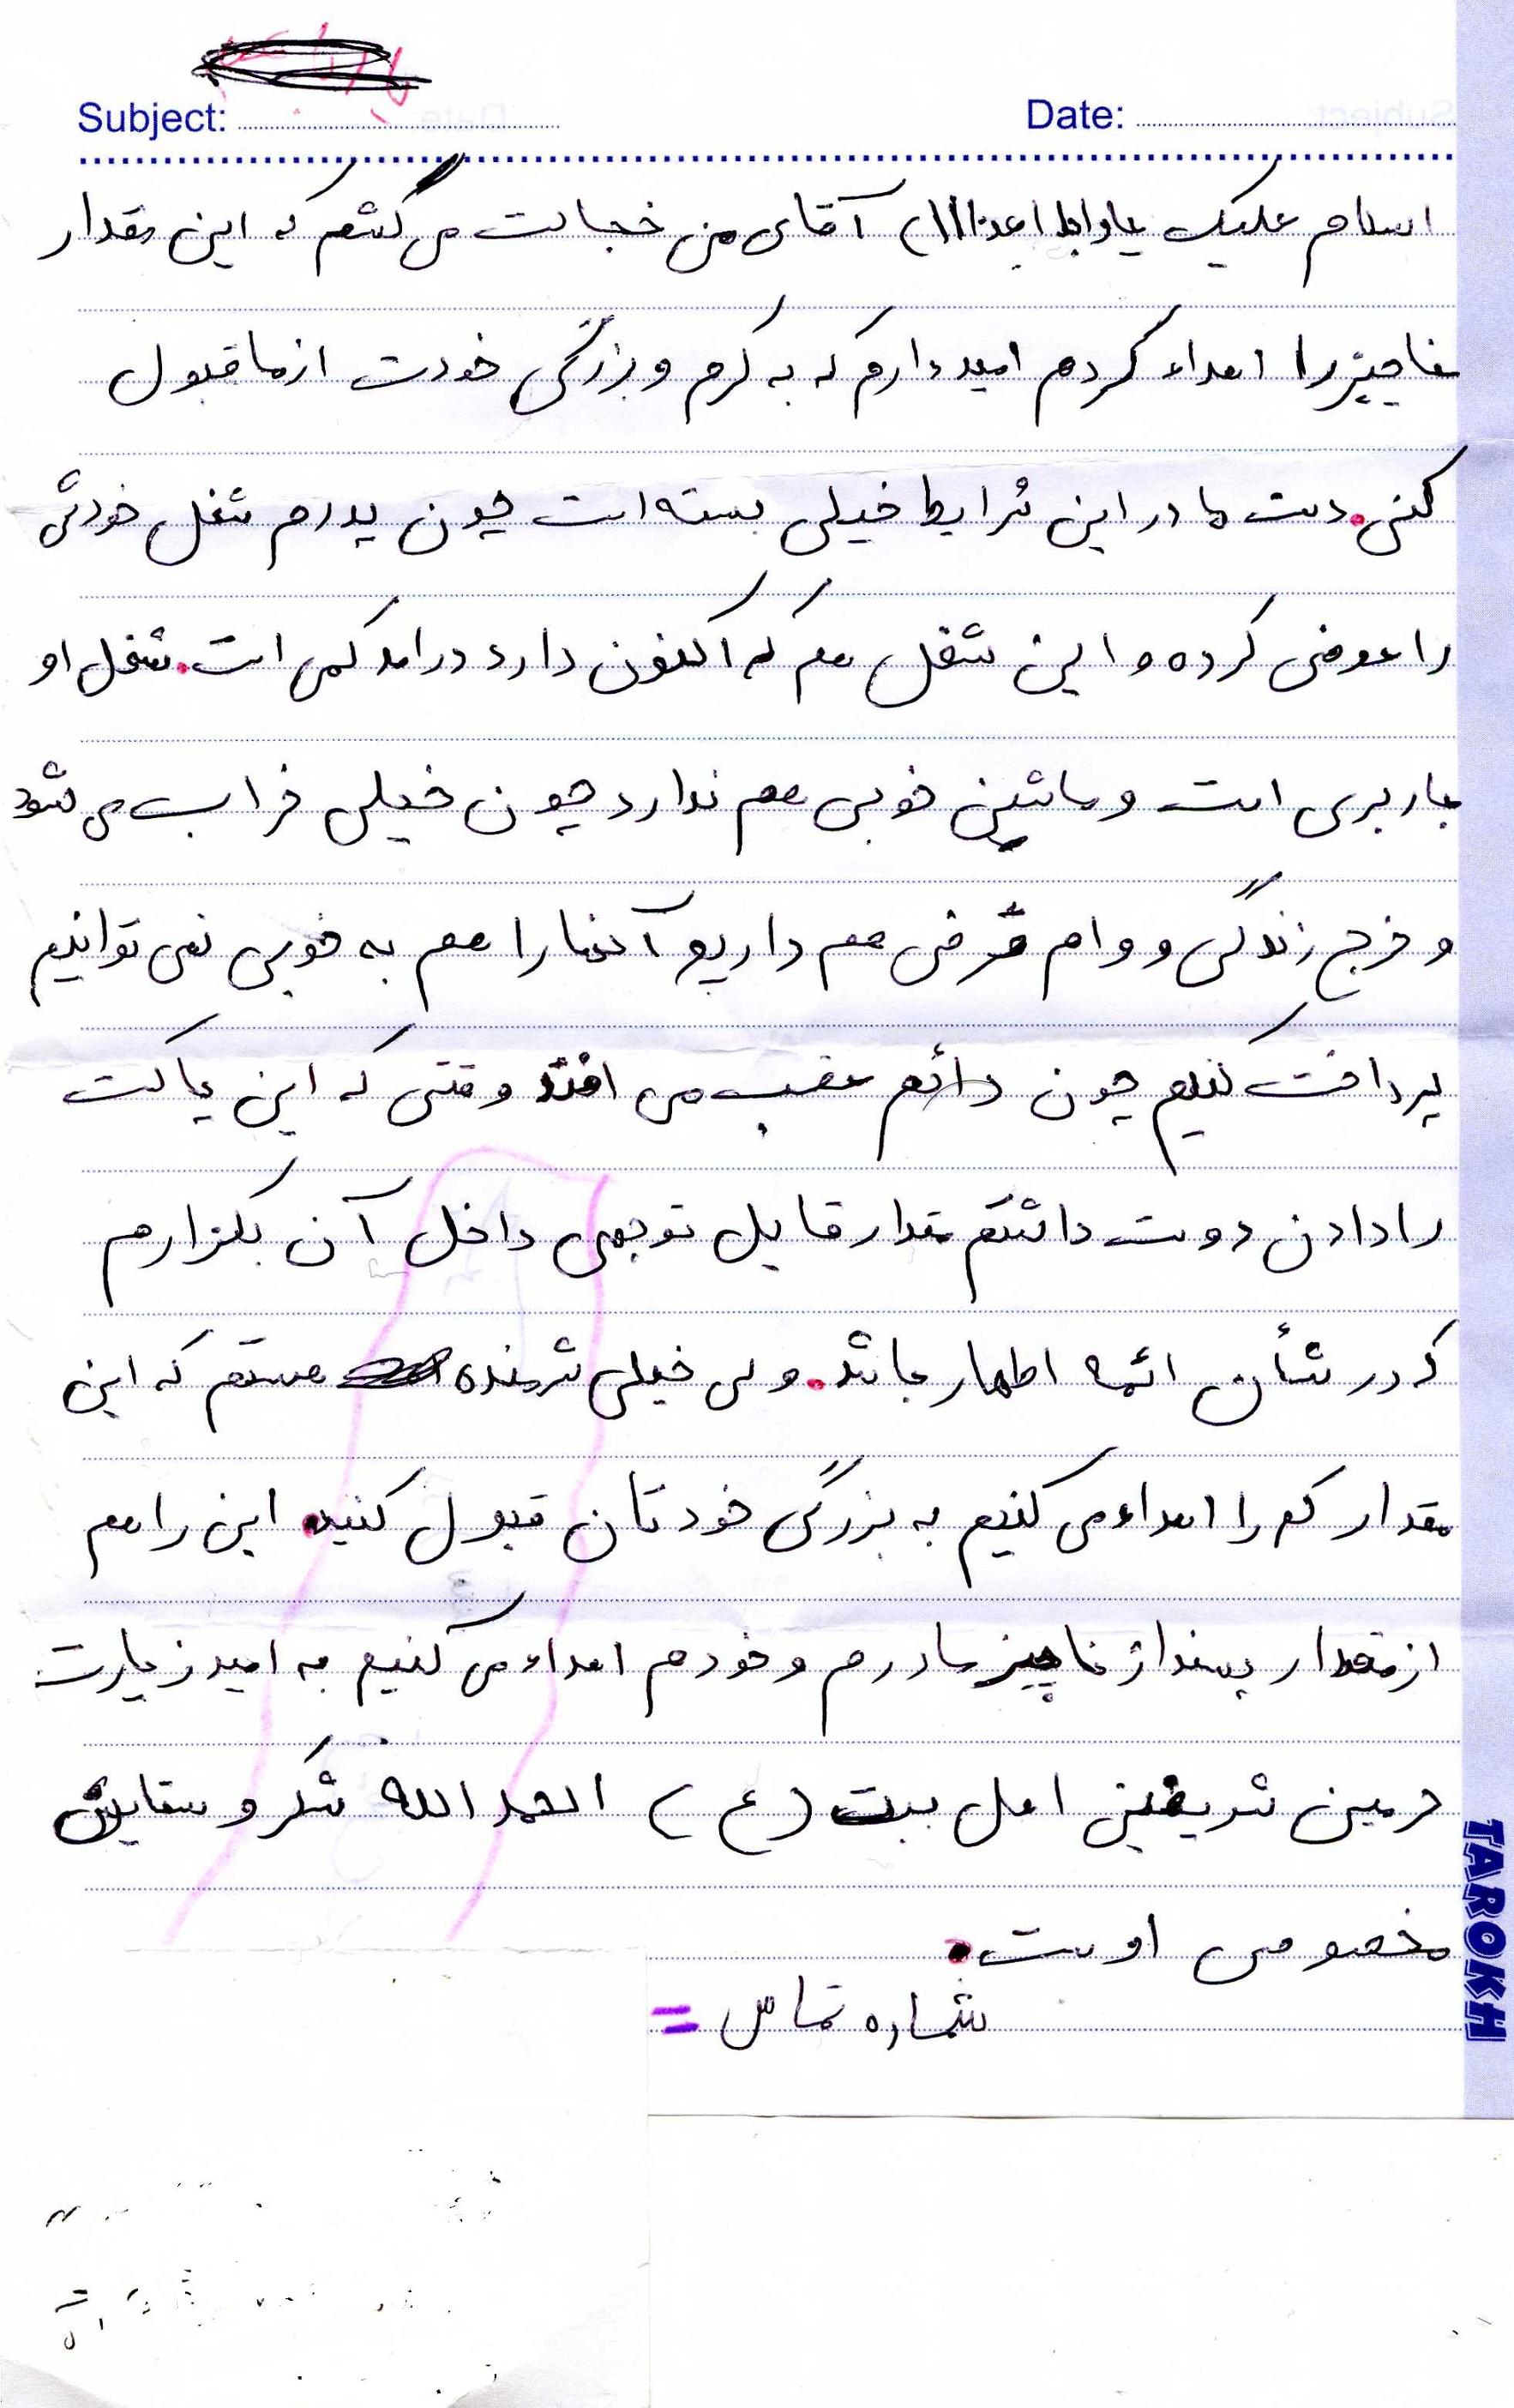 Subject: Date:
اسلام علیک یا ابا عبدا... آقای من خجالت می کشم که این مقدار
ناچیز را اهداء کردم امید دارم که به کرم و بزرگی خودت از ما قبول
کنی. دست ما در این شرایط خیلی بسته است چون پدرم شغل خودش
را عوض کرده و این شغل هم که اکنون دارد درامد کمی است. شغل او
باربری است و ماشین خوبی هم ندارد چون خیلی خراب می شود
و خرج زندگی و وام قرضی هم داریم آنها را هم به خوبی نمی توانیم
پرداخت کنیم چون دائم عقب می افتد وقتی که این پاکت
را دادن دوست داشتم مقدار قابل توجهی داخل آن بگزارم
که در شأن ائمه اطهار باشد. ولی خیلی شرمنده هستم که این
مقدار کم را اهداء می کنیم به بزرگی خودتان قبول کنید. این را هم
از مقدار پسنداز ناچیز مادرم و خودم اهداء می کنیم به امید زیارت
حرمین شریفین اهل بیت (ع) الحمد الله شکر و ستایش
مخصوص اوست.
شماره تماس =
TAROKH